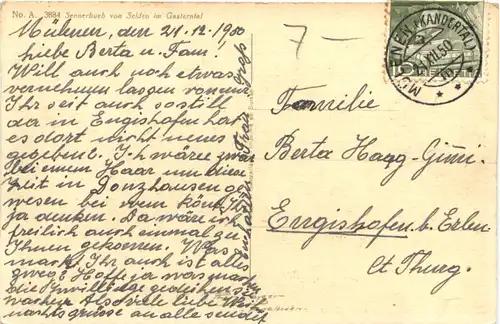 No. A. 3884 Sennerbueb von Selden im Gasterntal
Mülenen, den 21.12.1950
Liebe Berta u. Fam!
Will auch noch etwas
vernehmen lassen von mir.
Ihr seit auch so still
der in Engishofen hat
es dort nicht neues
gegeben. Ich wäre zwar
bei einem Haar um diese
Zeit in Donzhausen ge
wesen bei wem könnt Ihr
ja denken. Da wäre ich
freilich auch einmal zu
Ihnen gekommen. Was
macht Ihr auch ist alles
zweg? Hoffe ja was machen
die Zwillinge gedeihen sie
wacker. Also viele liebe Weih
nachtsgrüsse an alle sendet
7-
MÜLENEN (KANDERTAL)
XII.50
Familie
Berta Hagg-Gimi.
Engishofen b. Erlen
Ct Thurg.